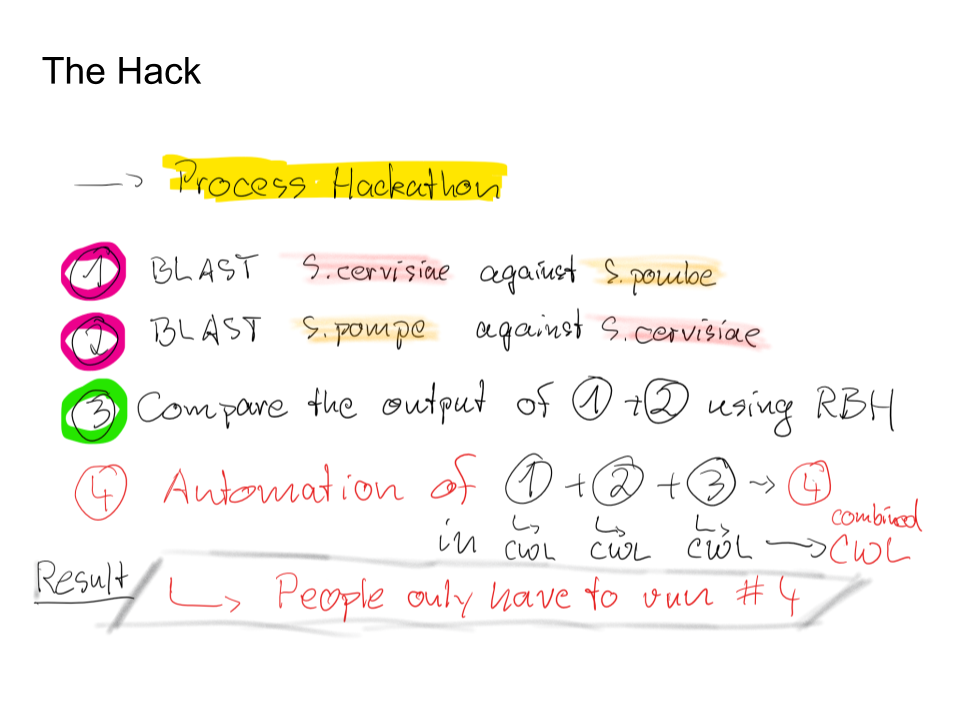 The Hack
→ Process Hackathon
① BLAST S.cervisiae against S.pombe
② BLAST S.pompe against S.cervisiae
③ Compare the output of ① + ② using RBH
④ Automation of ① + ② + ③ → ④
combined
in ↳ CWL ↳ CWL ↳ CWL → CWL
Result ↳ People only have to run # 4